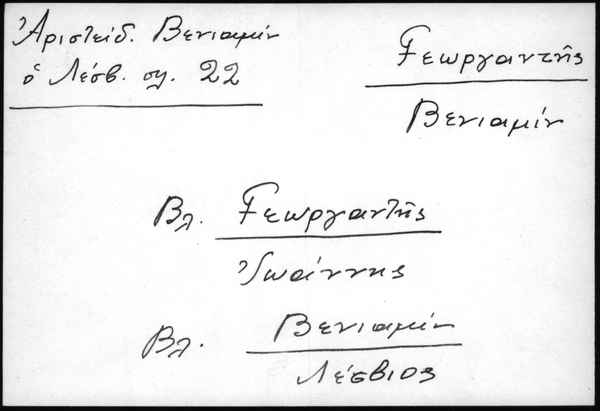 Ἀριστείδ. Βενιαμίν
ὁ Λέσβ. σχ. 22
Γεωργαντῆς
Βενιαμίν
Βλ. Γεωργαντῆς
Ἰωάννης
Βλ. Βενιαμίν
Λέσβιος